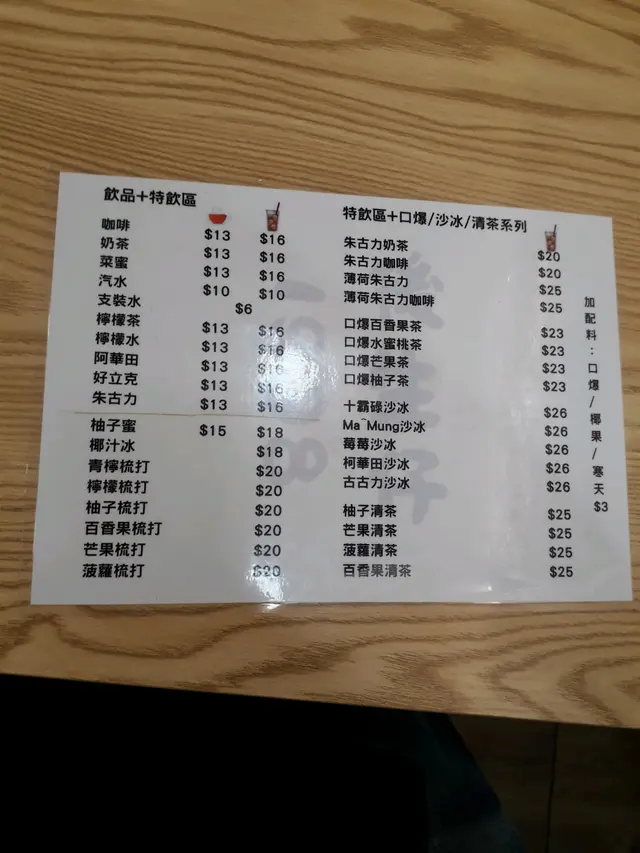 飲品+特飲區
咖啡 $13 $16
奶茶 $13 $16
菜蜜 $13 $16
汽水 $10 $10
支裝水 $6
檸檬茶 $13 $16
檸檬水 $13 $16
阿華田 $13 $16
好立克 $13 $16
朱古力 $13 $16
柚子蜜 $15 $18
椰汁冰 $18
青檸梳打 $20
檸檬梳打 $20
柚子梳打 $20
百香果梳打 $20
芒果梳打 $20
菠蘿梳打 $20
特飲區+口爆/沙冰/清茶系列
朱古力奶茶 $20
朱古力咖啡 $20
薄荷朱古力 $25
薄荷朱古力咖啡 $25
口爆百香果茶 $23
口爆水蜜桃茶 $23
口爆芒果茶 $23
口爆柚子茶 $23
十霸碌沙冰 $26
Ma^Mung沙冰 $26
莓莓沙冰 $26
柯華田沙冰 $26
古古力沙冰 $26
柚子清茶 $25
芒果清茶 $25
菠蘿清茶 $25
百香果清茶 $25
加配料:口爆/椰果/寒天 $3